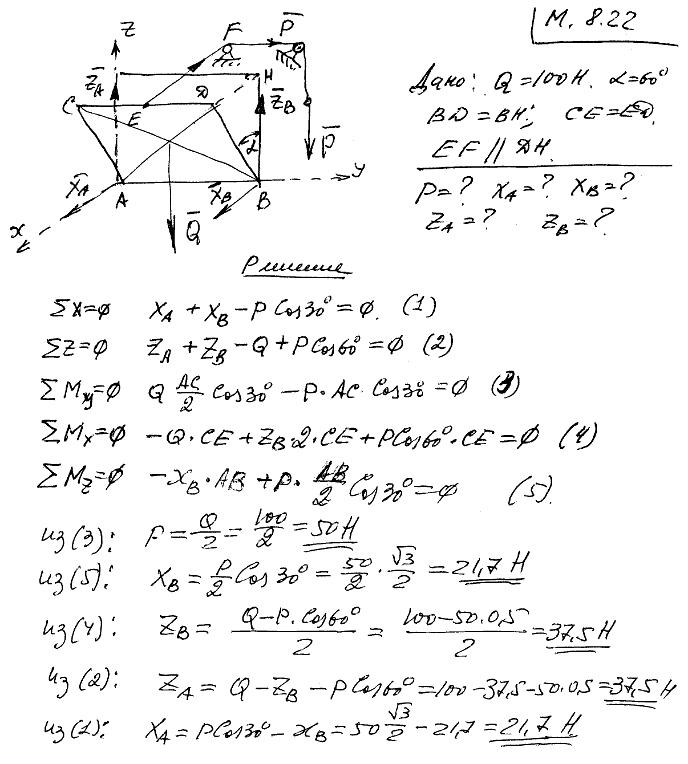 М. 8.22
Z
F
P̄
Z̄A
H
C
E
D
Z̄B
α
P̄
Y
X̄A
A
X̄B
B
x
Q̄
Дано: Q = 100Н. α=60°
BD = BH; CE = ED.
EF // DH.
P=? XA=? XB=?
ZA=? ZB=?
Решение
ΣX=0 XA + XB - P Cos30° = 0. (1)
ΣZ=0 ZA + ZB - Q + P Cos60° = 0 (2)
ΣMy=0 Q AC/2 Cos30° - P·AC·Cos30° = 0 (3)
ΣMx=0 -Q·CE + ZB·2·CE + P Cos60°·CE = 0 (4)
ΣMz=0 -XB·AB + P·AB/2 Cos30° = 0 (5).
из(3): F = Q/2 = 100/2 = 50 Н
из(5): XB = P/2 Cos30° = 50/2 · √3/2 = 21,7 Н
из(4): ZB = (Q-P·Cos60°)/2 = (100-50·0,5)/2 = 37,5 Н
из(2): ZA = Q - ZB - P Cos60° = 100-37,5-50·0,5 = 37,5 Н
из(1): XA = P Cos30° - XB = 50 √3/2 - 21,7 = 21,7 Н.